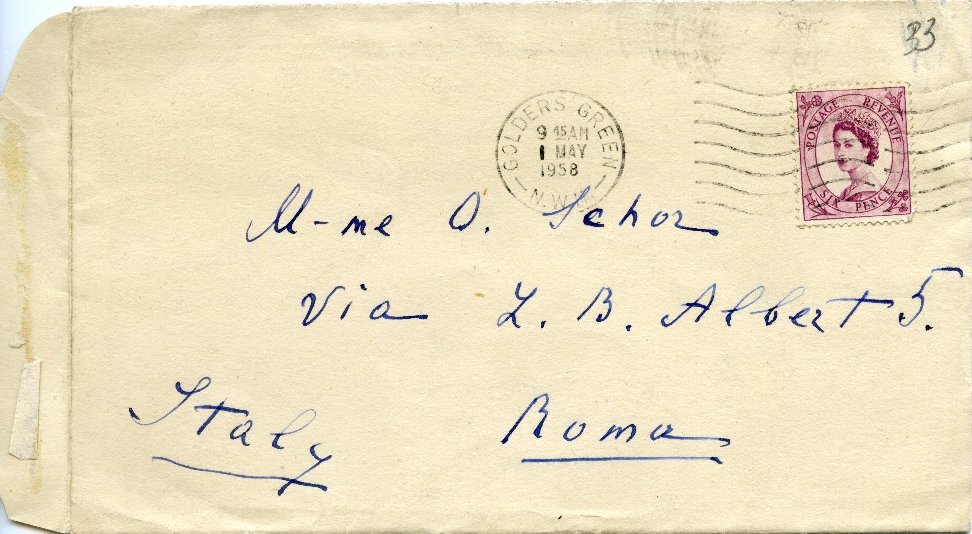 33
GOLDERS GREEN
9 45 AM
1 MAY
1958
N.W.
POSTAGE REVENUE
SIX PENCE
M-me O. Schor
Via L. B. Albert 5.
Roma
Italy